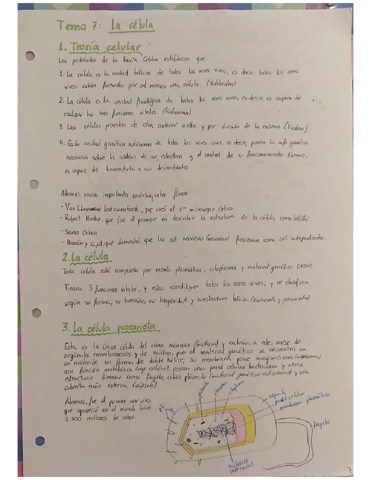 Tema 7: La célula
1. Teoría celular
Los postulados de la Teoría Celular establecen que
1. La célula es la unidad básica de todos los seres vivos, es decir, todos los seres
vivos están formados por al menos una célula. (Schleiden)
2. La célula es la unidad fisiológica de todos los seres vivos es decir, es capaz de
realizar las tres funciones vitales. (Schwann)
3. Las células proceden de otra, anterior a ella y por división de la misma (Virchow)
4. Es la unidad genética autónoma de todos los seres vivos es decir, posee la info genética
necesaria sobre la síntesis de su estructura y el control de su funcionamiento
es capaz de transmitirla a sus descendientes.
Además, varios importantes científicos fueron
- Van Leeuwenhoek, que creó el 1er microscopio óptico
- Robert Hooke, que fue el primero en describir la estructura de la célula
- Severo Ochoa
- Ramón y Cajal, que demostró que las cél. nerviosas funcionan como cél. independientes.
2. La célula
Toda célula está compuesta por membr. plasmática, citoplasma y material genético (ADN).
Tienen 3 funciones vitales, y estas constituyen todos los seres vivos, y se clasifican
según su forma, su tamaño, su longevidad y estructura básica (eucariota y procariota)
3. La célula procariota
Esta es la única célula del reino móneras (bacterias) y exclusiva a este, carece de
orgánulos membranosos y de núcleo, pues el material genético se encuentra en
un nucleoide en forma de doble hélice, su membrana posee
con función metabólica, posee una pared celular bacteriana y otras
estructuras diversas como flagelos, cilios, plásmidos (material genético adicional) y una
cubierta más externa (cápsula)
Además, fue el primer ser vivo
que apareció en el mundo hace
3.500 millones de años.
ribosoma
citoplasma
cápsula
pared celular
membrana plasmática
flagelo
nucleoide
7